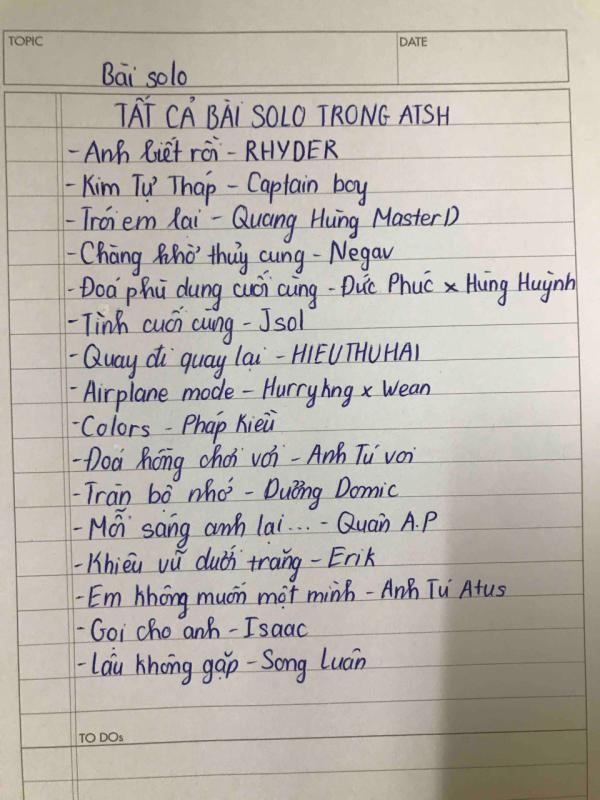 TOPIC
DATE
Bài solo
TẤT CẢ BÀI SOLO TRONG ATSH
- Anh biết rồi - RHYDER
- Kim Tự Tháp - Captain boy
- Trói em lại - Quang Hùng MasterD
- Chàng khờ thủy cung - Negav
- Đoá phù dung cuối cùng - Đức Phúc x Hùng Huỳnh
- Tình cuối cùng - Jsol
- Quay đi quay lại - HIEUTHUHAI
- Airplane mode - Hurrykng x Wean
- Colors - Pháp Kiều
- Đoá hồng chơi vơi - Anh Tú voi
- Tràn bộ nhớ - Dương Domic
- Mỗi sáng anh lại... - Quân A.P
- Khiêu vũ dưới trăng - Erik
- Em không muốn một mình - Anh Tú Atus
- Gọi cho anh - Isaac
- Lâu không gặp - Song Luân
TO DOs